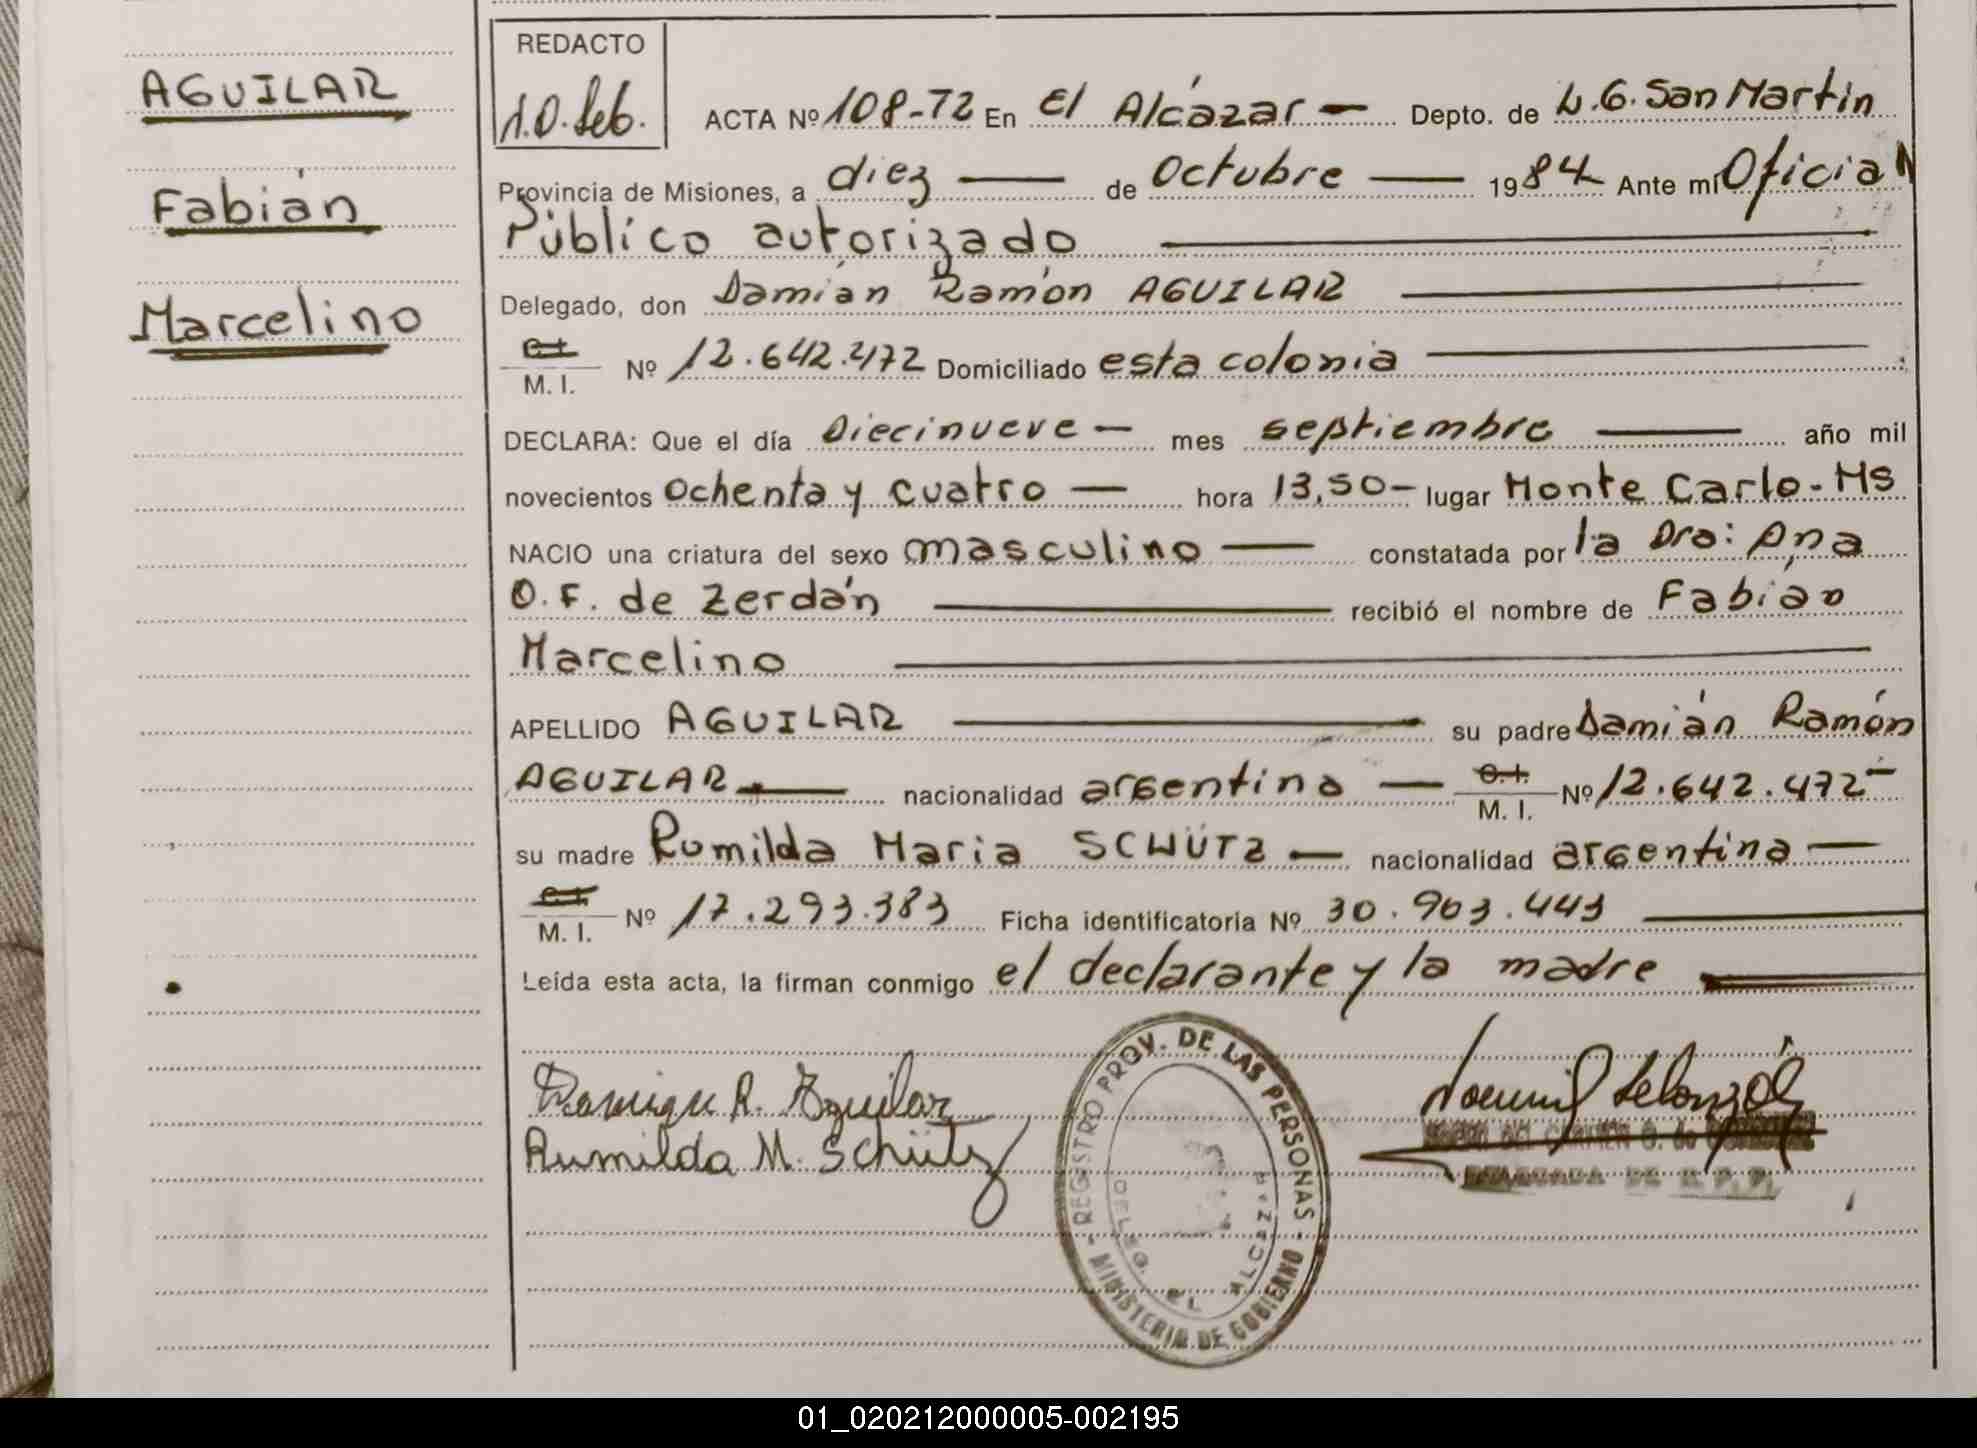 AGUILAR
Fabián
Marcelino
REDACTO
10. Feb.
ACTA Nº 108-72 En El Alcázar — Depto. de L.G. San Martin
Provincia de Misiones, a diez — de Octubre — 1984 Ante mí Oficial
Público autorizado
Delegado, don Damián Ramón AGUILAR
C.I. M. I. Nº 12.642.472 Domiciliado esta colonia
DECLARA: Que el día Diecinueve — mes septiembre — año mil
novecientos ochenta y cuatro — hora 13,50- lugar Monte Carlo - Ms
NACIO una criatura del sexo masculino — constatada por la Dra: Ana
O. F. de Zerdán — recibió el nombre de Fabián
Marcelino
APELLIDO AGUILAR — su padre Damián Ramón
AGUILAR — nacionalidad argentina — C.I. M. I. Nº 12.642.472-
su madre Romilda Maria SCHÜTZ — nacionalidad argentina —
C.I. M. I. Nº 17.293.383 Ficha identificatoria Nº 30.903.443
Leída esta acta, la firman conmigo el declarante y la madre
R. Aguilar
Rumilda M. Schütz
REGISTRO PROV. DE LAS PERSONAS
MINISTERIO DE GOBIERNO
DELEG. EL ALCAZAR
01_020212000005-002195